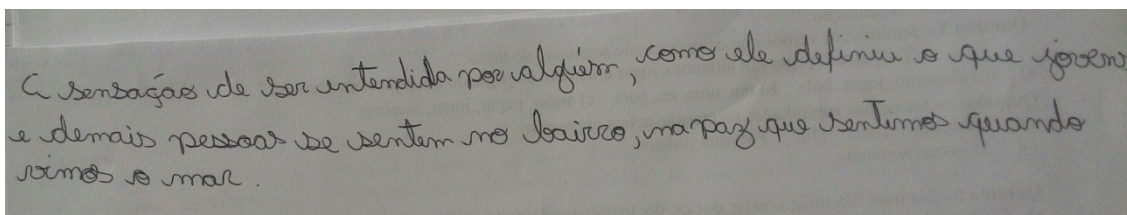 A sensação de ser intendida por alguém, como ele definiu o que jovens
e demais pessoas se sentem no bairro, na paz que sentimos quando
vimos o mar.